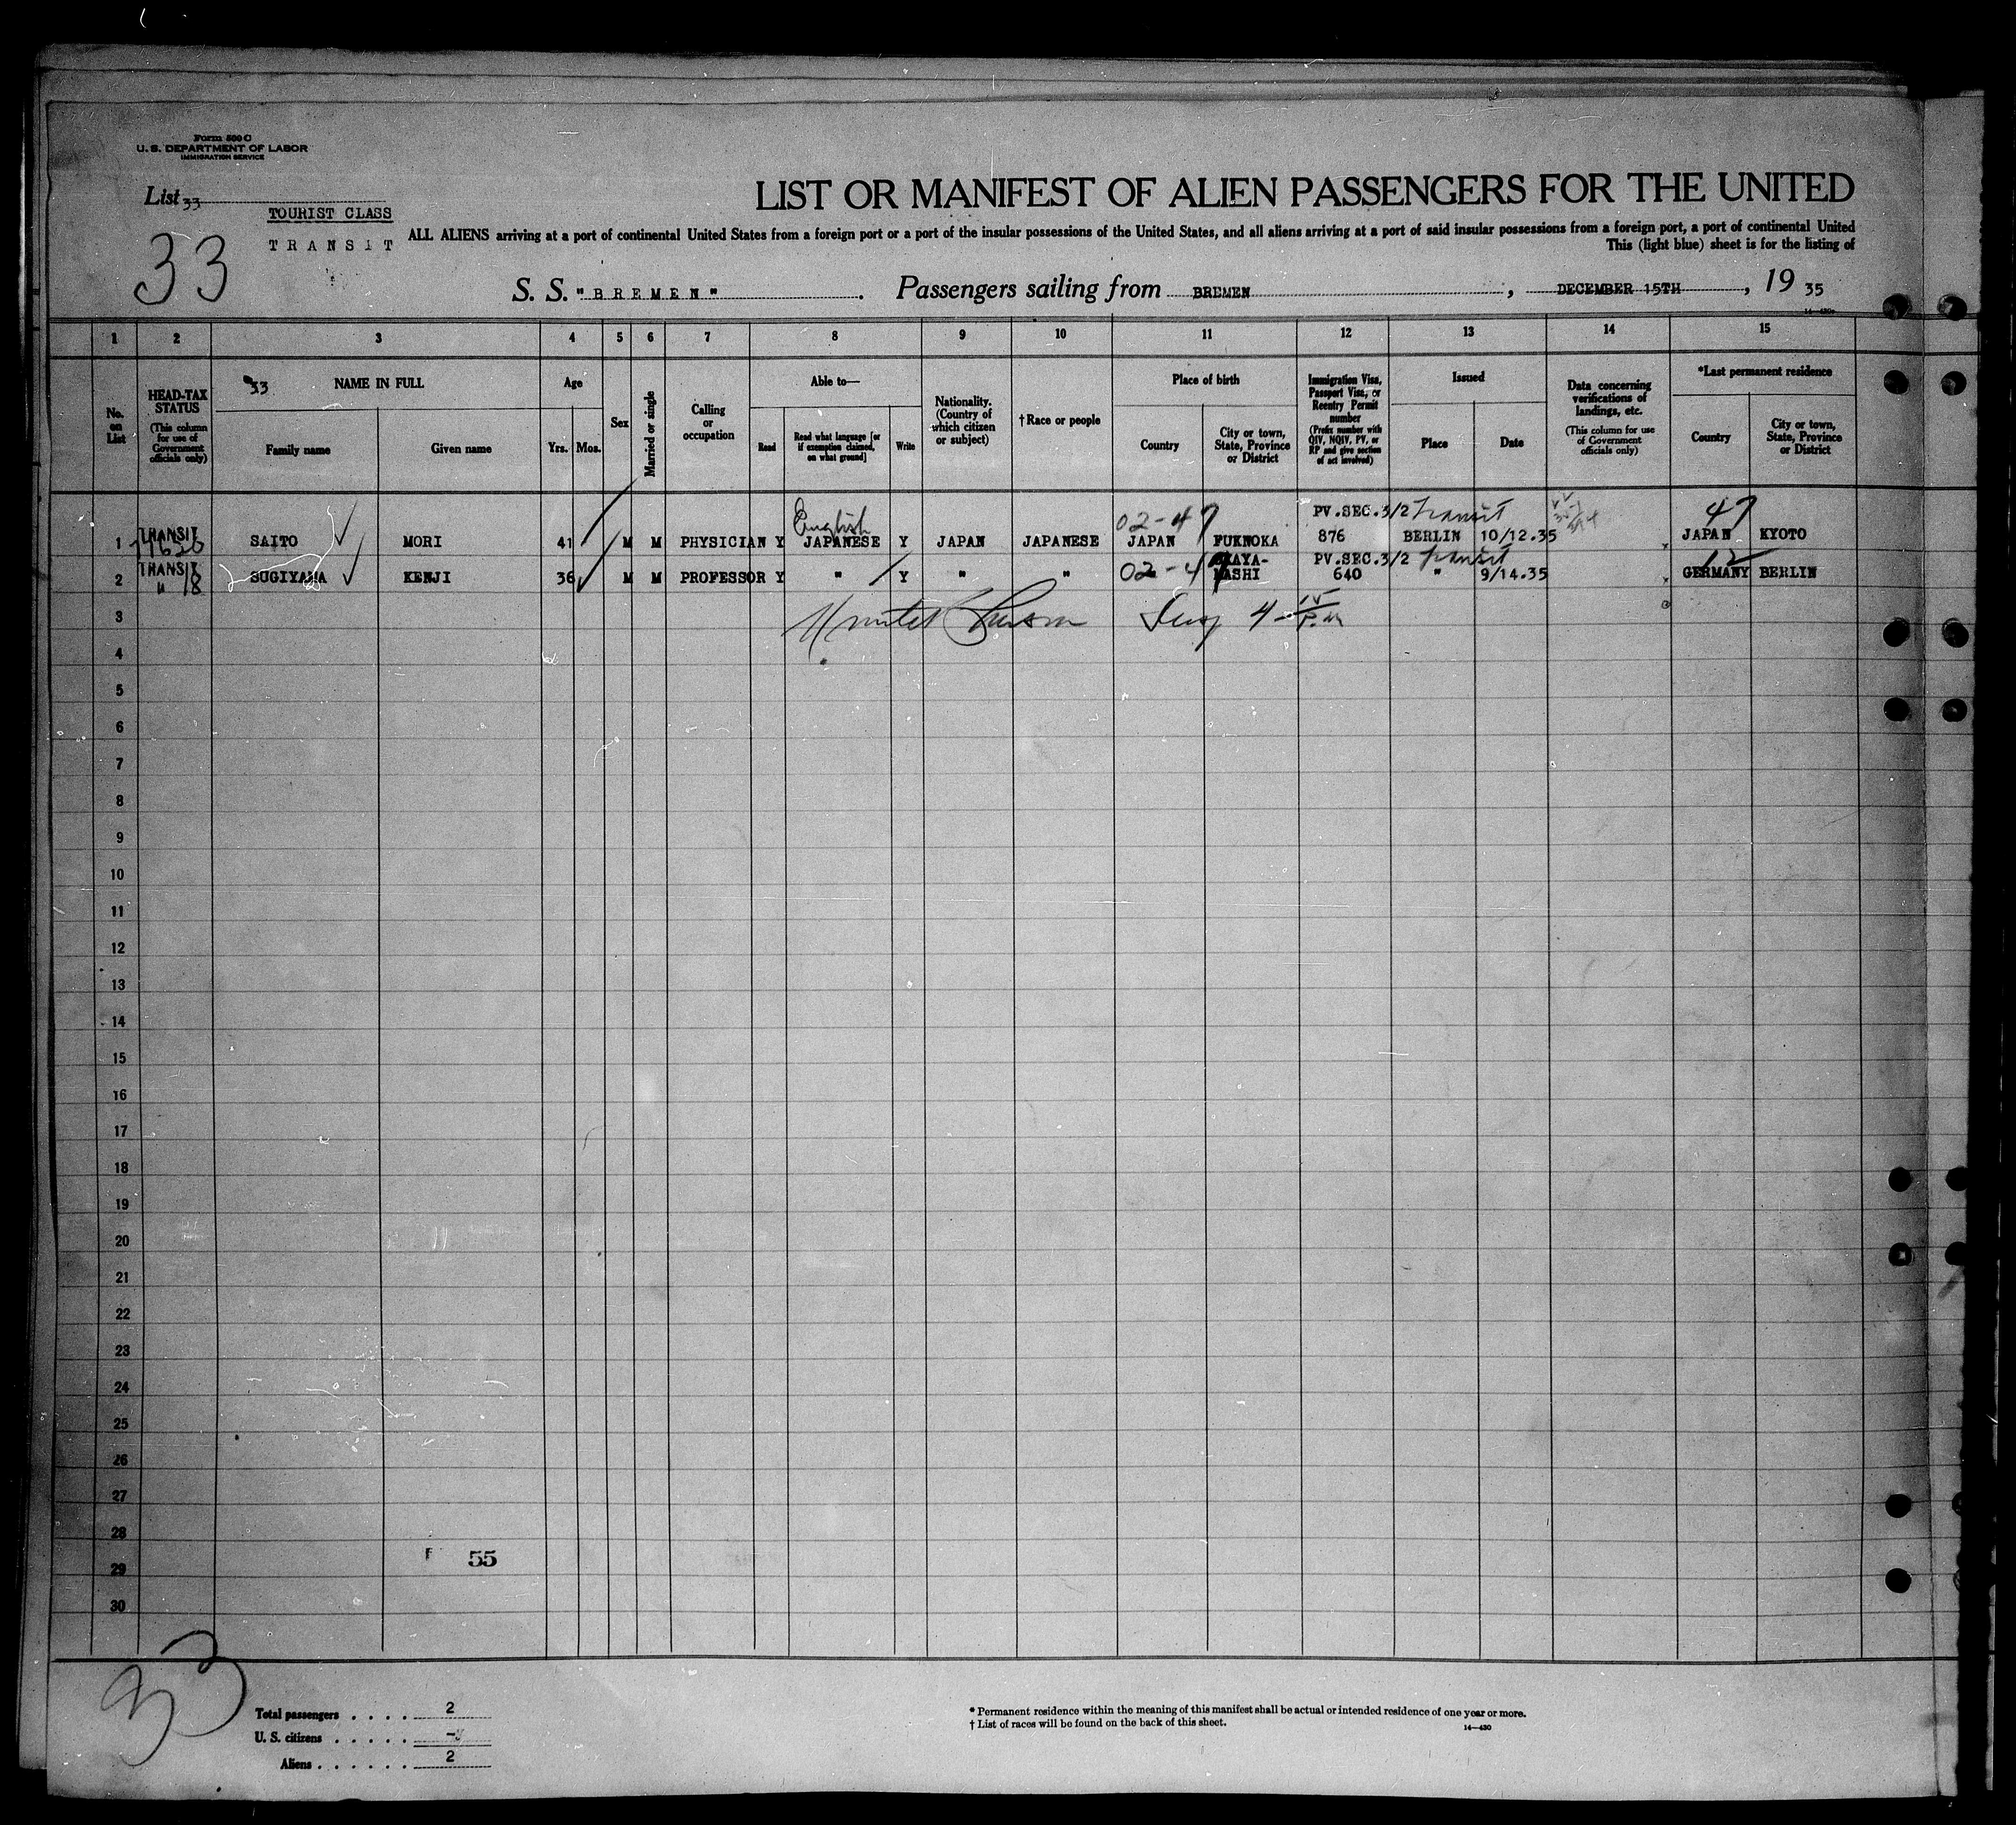 Form 500 C
U. S. DEPARTMENT OF LABOR
IMMIGRATION SERVICE
List 33
TOURIST CLASS
TRANSIT
33
LIST OR MANIFEST OF ALIEN PASSENGERS FOR THE UNITED
ALL ALIENS arriving at a port of continental United States from a foreign port or a port of the insular possessions of the United States, and all aliens arriving at a port of said insular possessions from a foreign port, a port of continental United
This (light blue) sheet is for the listing of
S. S. "BREMEN". Passengers sailing from BREMEN, DECEMBER 15TH, 19 35
1 2 3 4 5 6 7 8 9 10 11 12 13 14 15
No. on List
HEAD-TAX STATUS
(This column for use of Government officials only)
33 NAME IN FULL
Family name
Given name
Age
Yrs. Mos.
Sex
Married or single
Calling or occupation
Able to—
Read
Read what language [or if exemption claimed, on what ground]
Write
Nationality. (Country of which citizen or subject)
†Race or people
Place of birth
Country
City or town, State, Province or District
Immigration Visa, Passport Visa, or Reentry Permit number
(Prefix number with QIV, NQIV, PV, or RP and give section of act involved)
Issued
Place
Date
Data concerning verifications of landings, etc.
(This column for use of Government officials only)
*Last permanent residence
Country
City or town, State, Province or District
English 02-47 PV.SEC.3/2 Transit 47
1 TRANSIT SAITO MORI 41 M M PHYSICIAN Y JAPANESE Y JAPAN JAPANESE JAPAN FUKNOKA 876 BERLIN 10/12.35 JAPAN KYOTO
PV.SEC.3/2 Transit 12
2 TRANSIT " 18 SUGIYAMA KENJI 36 M M PROFESSOR Y " Y " " 02-47 640 " 9/14.35 GERMANY BERLIN
3
4
5
6
7
8
9
10
11
12
13
14
15
16
17
18
19
20
21
22
23
24
25
26
27
28
29
30
55
33
Total passengers . . . . 2
U. S. citizens . . . . . -
Aliens . . . . . . 2
* Permanent residence within the meaning of this manifest shall be actual or intended residence of one year or more.
† List of races will be found on the back of this sheet.
14—430